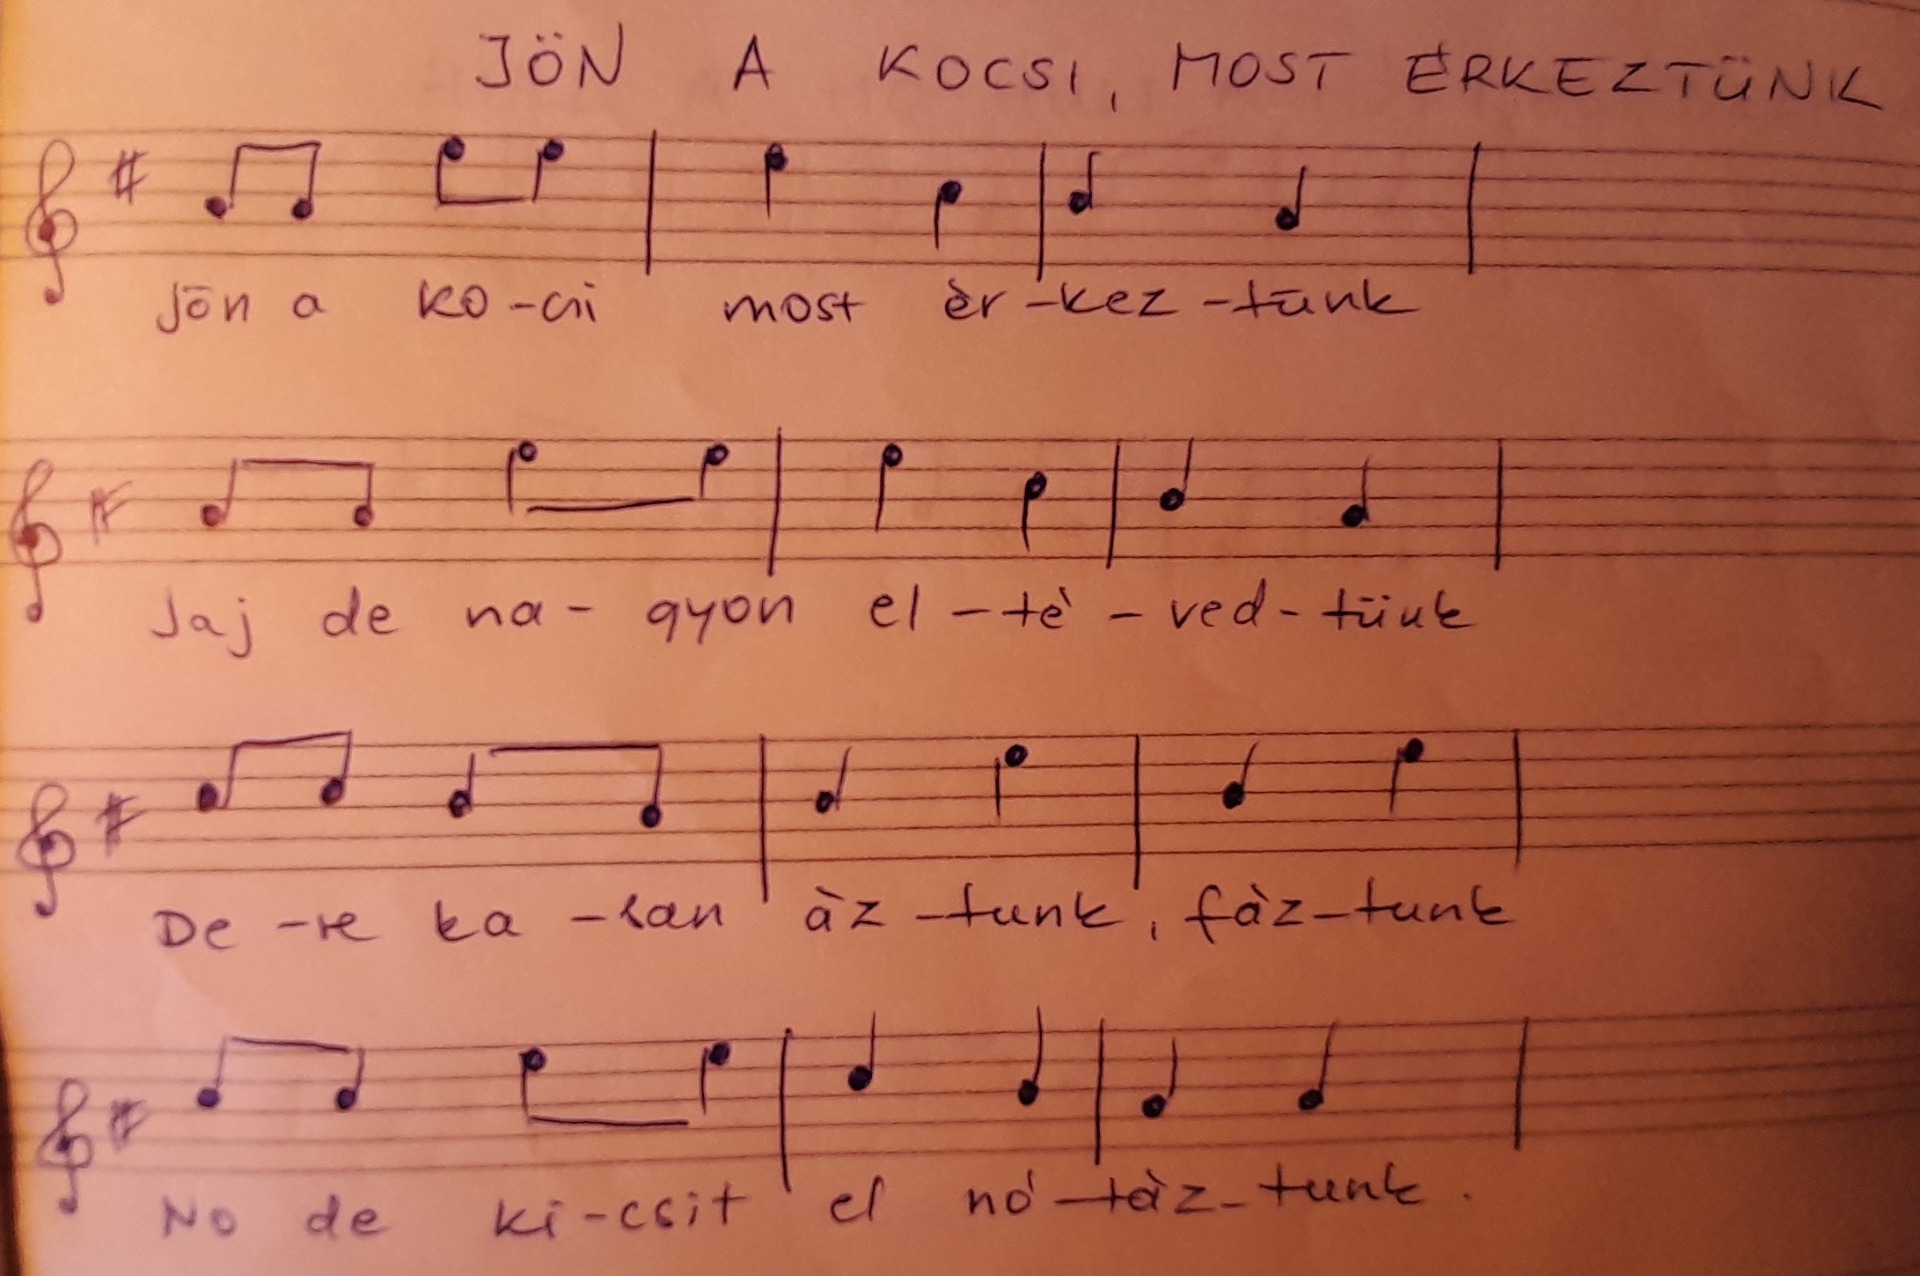 JÖN A KOCSI, MOST ÉRKEZTÜNK
Jön a ko-csi most èr-kez-tünk
Jaj de na-gyon el-tè-ved-tünk
De-re ka-san àz-tunk, fàz-tunk
No de ki-csit el nó-tàz-tunk.